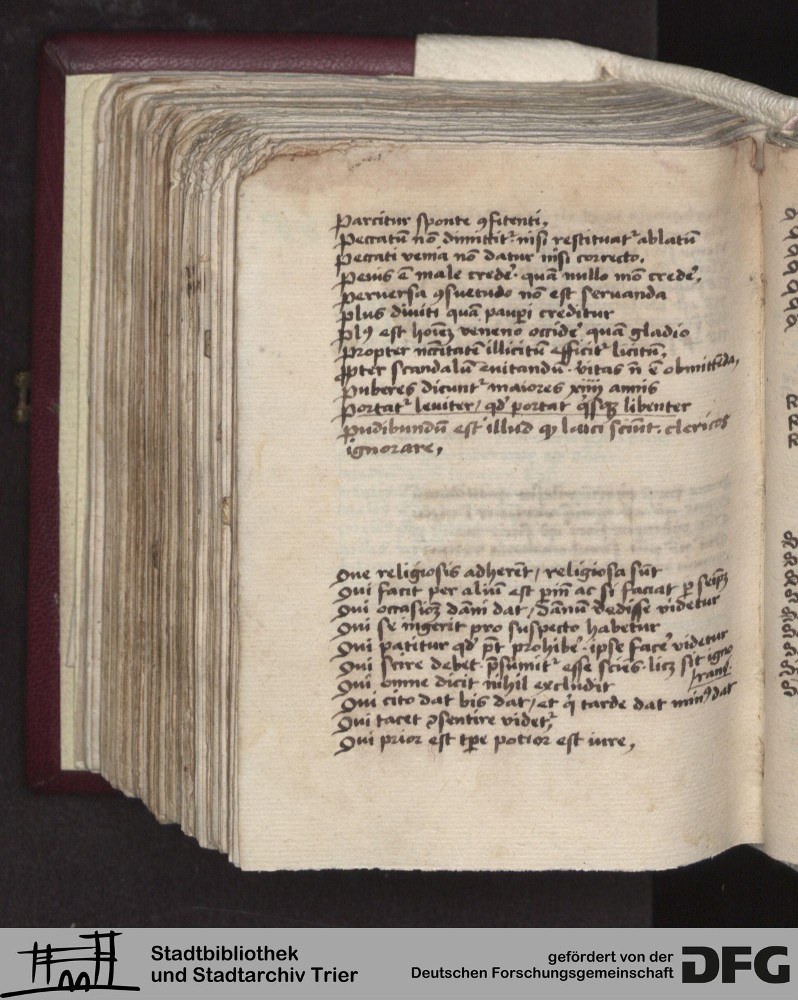 Parcitur sponte ꝯfitenti,
Peccatū nō dimittit᷑ nisi restituat᷑ ablatū
Peccati venia nō datur nisi correcto.
Peius ē male credē· quā nullo mō credē,
Perversa ꝯsuetudo nō est servanda
Plus diviti quā pauꝑi creditur
Plꝰ est hoīeꝫ veneno occidē quā gladio
Propter nc̄citatē illicitū efficit᷑ licitū,
ꝓpter scandalū euitandū· vitas n̄ ē obmittēda,
Puberes dicunt᷑ maiores xiiij annis
Portat᷑ leviter/ qd̄ portat q̄sqꝫ libenter
Pudibundū est illud qꝫ laici sciūt· clericos
ignorare,
Que religiosis adherēt/ religiosa sūt
Qui facit per aliū est ꝑīn ac si faciat ꝑ seip̄ꝫ
Qui occasioꝫ dāni dat/ dānū dedisse videtur
Qui se ingerit pro suspecto habetur
Qui patitur qd̄ pt̄ prohibē· ipse facē videtur
Qui scire debet· p̄sumit᷑ esse sciēs· licꝫ sit igno
rans.
Qui omne dicit nihil excludit
Qui cito dat bis dat/ et q̇ tarde dat minꝰ dat
Qui tacet ꝯsentire videt᷑
Qui prior est tꝑe potior est iure,
Stadtbibliothek
und Stadtarchiv Trier
gefördert von der
Deutschen Forschungsgemeinschaft
DFG